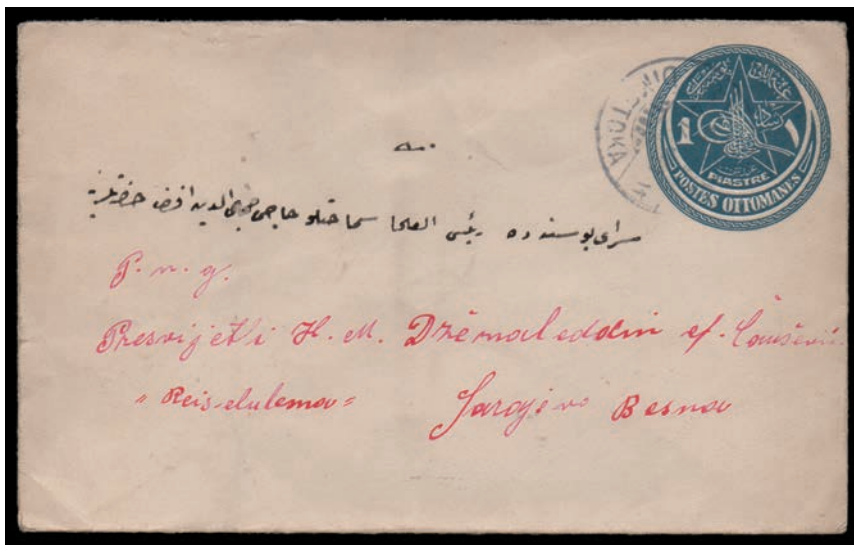 1 ١
PIASTRE
POSTES OTTOMANES
سراى بوسنه ده رئيس العلما سماحتلو حاجى الدين افندى حضرتلرينه
P. n. g.
Presvijetli H. M. Džemaleddin ef. Čaušević
" Reis-elulema "
Sarajevo Bosna